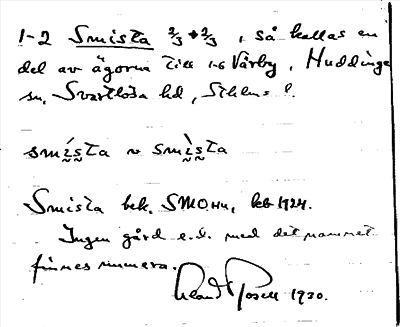 1-2 Smista 2/3 + 2/3, så kallas en
del av ägorna till 1-6 Vårby, Huddinge
sn, Svartlösa hd, Sthlms l.
smista ~ smista
Smista bek. SMOHu, keb 1924.
Ingen gård e.d. med det namnet
finnes numera.
Posse 1930.